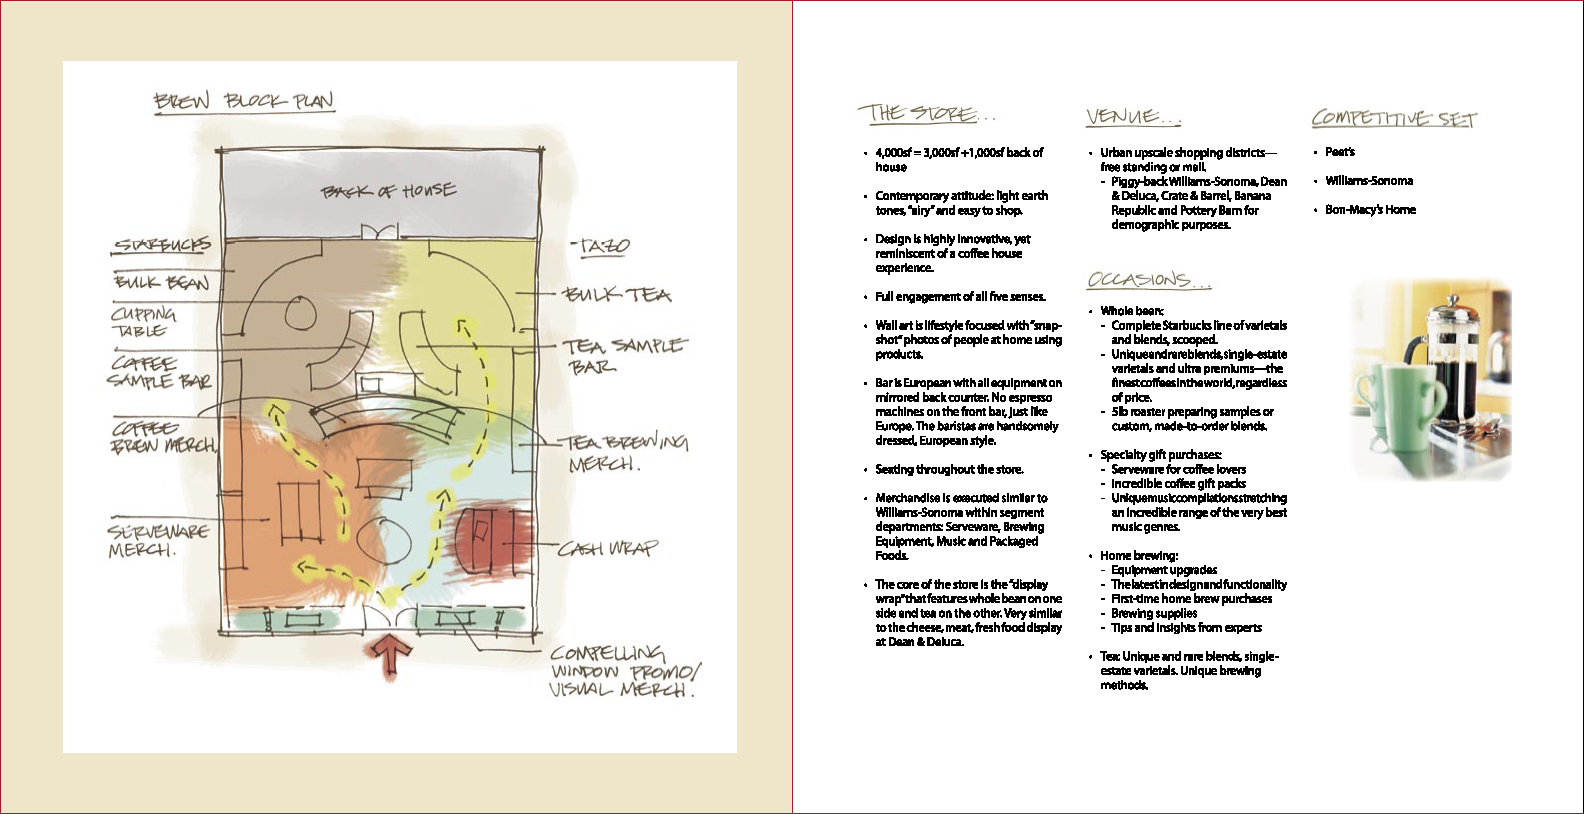 BREW BLOCK PLAN
BACK OF HOUSE
STARBUCKS
BULK BEAN
CUPPING
TABLE
COFFEE
SAMPLE BAR
COFFEE
BREW MERCH.
SERVEWARE
MERCH.
-TAZO
BULK TEA
TEA SAMPLE
BAR
TEA BREWING
MERCH.
CASH WRAP
COMPELLING
WINDOW PROMO/
VISUAL MERCH.
THE STORE...
• 4,000sf = 3,000sf +1,000sf back of
house
• Contemporary attitude: light earth
tones, "airy" and easy to shop.
• Design is highly innovative, yet
reminiscent of a coffee house
experience.
• Full engagement of all five senses.
• Wall art is lifestyle focused with "snap-
shot" photos of people at home using
products.
• Bar is European with all equipment on
mirrored back counter. No espresso
machines on the front bar, just like
Europe. The baristas are handsomely
dressed, European style.
• Seating throughout the store.
• Merchandise is executed similar to
Williams-Sonoma within segment
departments: Serveware, Brewing
Equipment, Music and Packaged
Foods.
• The core of the store is the "display
wrap" that features whole bean on one
side and tea on the other. Very similar
to the cheese, meat, fresh food display
at Dean & Deluca.
VENUE...
• Urban upscale shopping districts—
free standing or mall.
- Piggy-back Williams-Sonoma, Dean
& Deluca, Crate & Barrel, Banana
Republic and Pottery Barn for
demographic purposes.
OCCASIONS...
• Whole bean:
- Complete Starbucks line of varietals
and blends, scooped.
- Unique and rare blends, single-estate
varietals and ultra premiums—the
finest coffees in the world, regardless
of price.
- 5lb roaster preparing samples or
custom, made-to-order blends.
• Specialty gift purchases:
- Serveware for coffee lovers
- Incredible coffee gift packs
- Unique music compilations stretching
an incredible range of the very best
music genres.
• Home brewing:
- Equipment upgrades
- The latest in design and functionality
- First-time home brew purchases
- Brewing supplies
- Tips and insights from experts
• Tea: Unique and rare blends, single-
estate varietals. Unique brewing
methods.
COMPETITIVE SET
• Peet's
• Williams-Sonoma
• Bon-Macy's Home